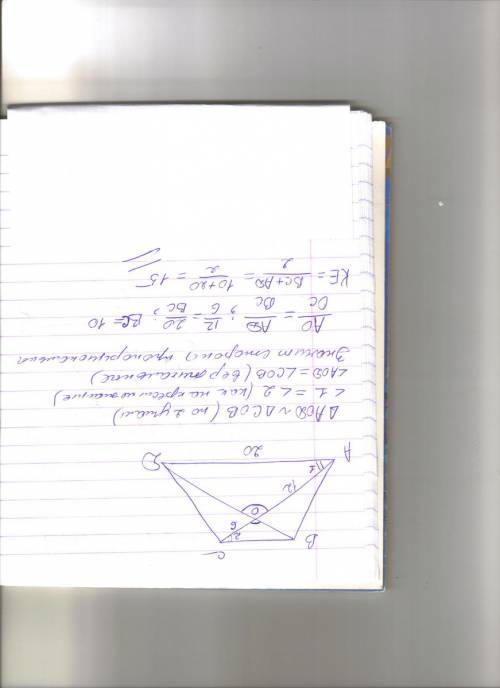 B
C
2
6
O
12
1
A
20
D
Δ AOD ~ Δ COB (по 2 углам)
∠1 = ∠2 (как накрест лежащие)
∠AOD = ∠COB (вертикальные)
Значит стороны пропорциональны
AO/OC = AD/BC ; 12/6 = 20/BC ; BC = 10
KE = BC+AD/2 = 10+20/2 = 15